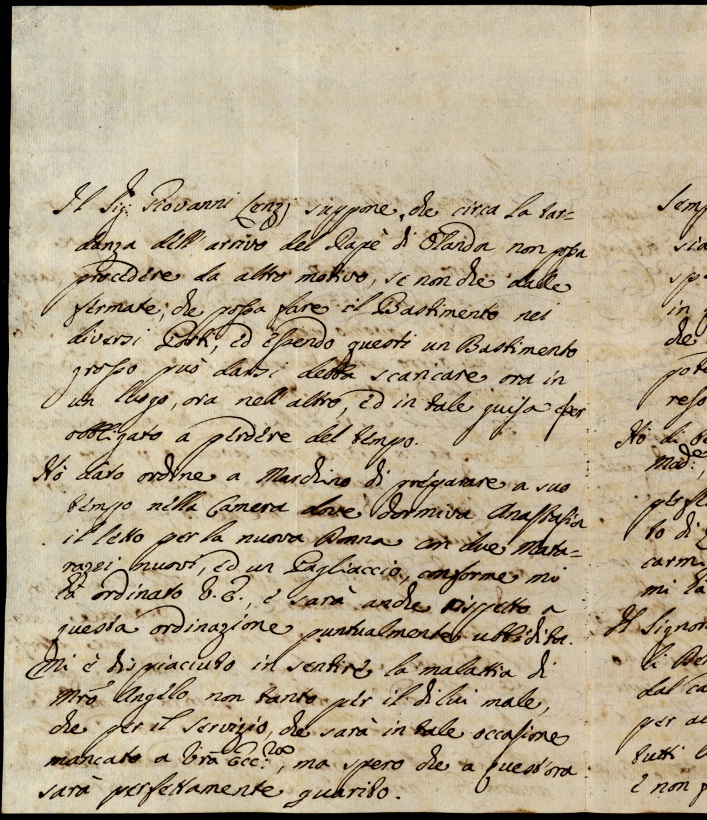 Il Sig: Giovanni Cenzi suppone, che circa la tar=
danza dell' arrivo del Rapè di Olanda non possa
procedere da altro motivo, se non che dalle
fermate, che possa fare il Bastimento nei
diversi Porti, ed essendo questi un Bastimento
grosso può darsi debba scaricare ora in
un luogo, ora nell' altro, ed in tale guisa esser
obbligato a perdere del tempo.
Hò dato ordine a Marchino di preparare a suo
tempo nella Camera dove dormiva Anastasia
il letto per la nuova Donna con due Mata=
razzi nuovi, ed un Pagliaccio, conforme mi
hà ordinato V. E., e sarà anche rispetto a
questa ordinazione puntualmente ubbidita.
Mi è dispiaciuto in sentire la malattia di
Mrõ Angelo non tanto per il di lui male,
che per il servizio, che sarà in tale occasione
mancato a Vrã Ecc:, ma spero che a quest'ora
sarà perfettamente guarito.
Semp
sia
sp
in p
che
pote
reso
Hò di
Mad:
per
to di
carm
mi hà
Il Signor
la Ber
dal ca
per a
tutti
e non p